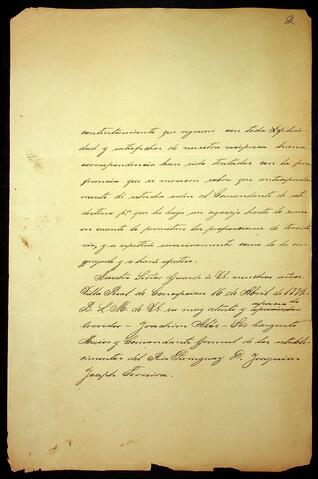 2.
contentamiento que ygoren con toda
dad y satisfechos de nuestra reciproca buena
correspondencia han sido tratados con la pro
que se merecen sobre que anticipada
mente di estrecha orden al Comandante de ese
destino pa. que les haga un agasajo hasta lo sumo
en cuanto lo permitan las proporciones de
rio, y a repetirle nuevamente como lo he
y se hará efectivo.
Nuestro Señor Guarde á Vd. muchos años.
Villa Real de Concepcion 16 de Abril de
B. L. M. de Vd. su muy atento y
servidor - Joachim Alós - Sor. Sargento
Mayor y Comandante General de los estable
cimientos del Rio Paraguay D. Joaquim
Joseph Ferreira.